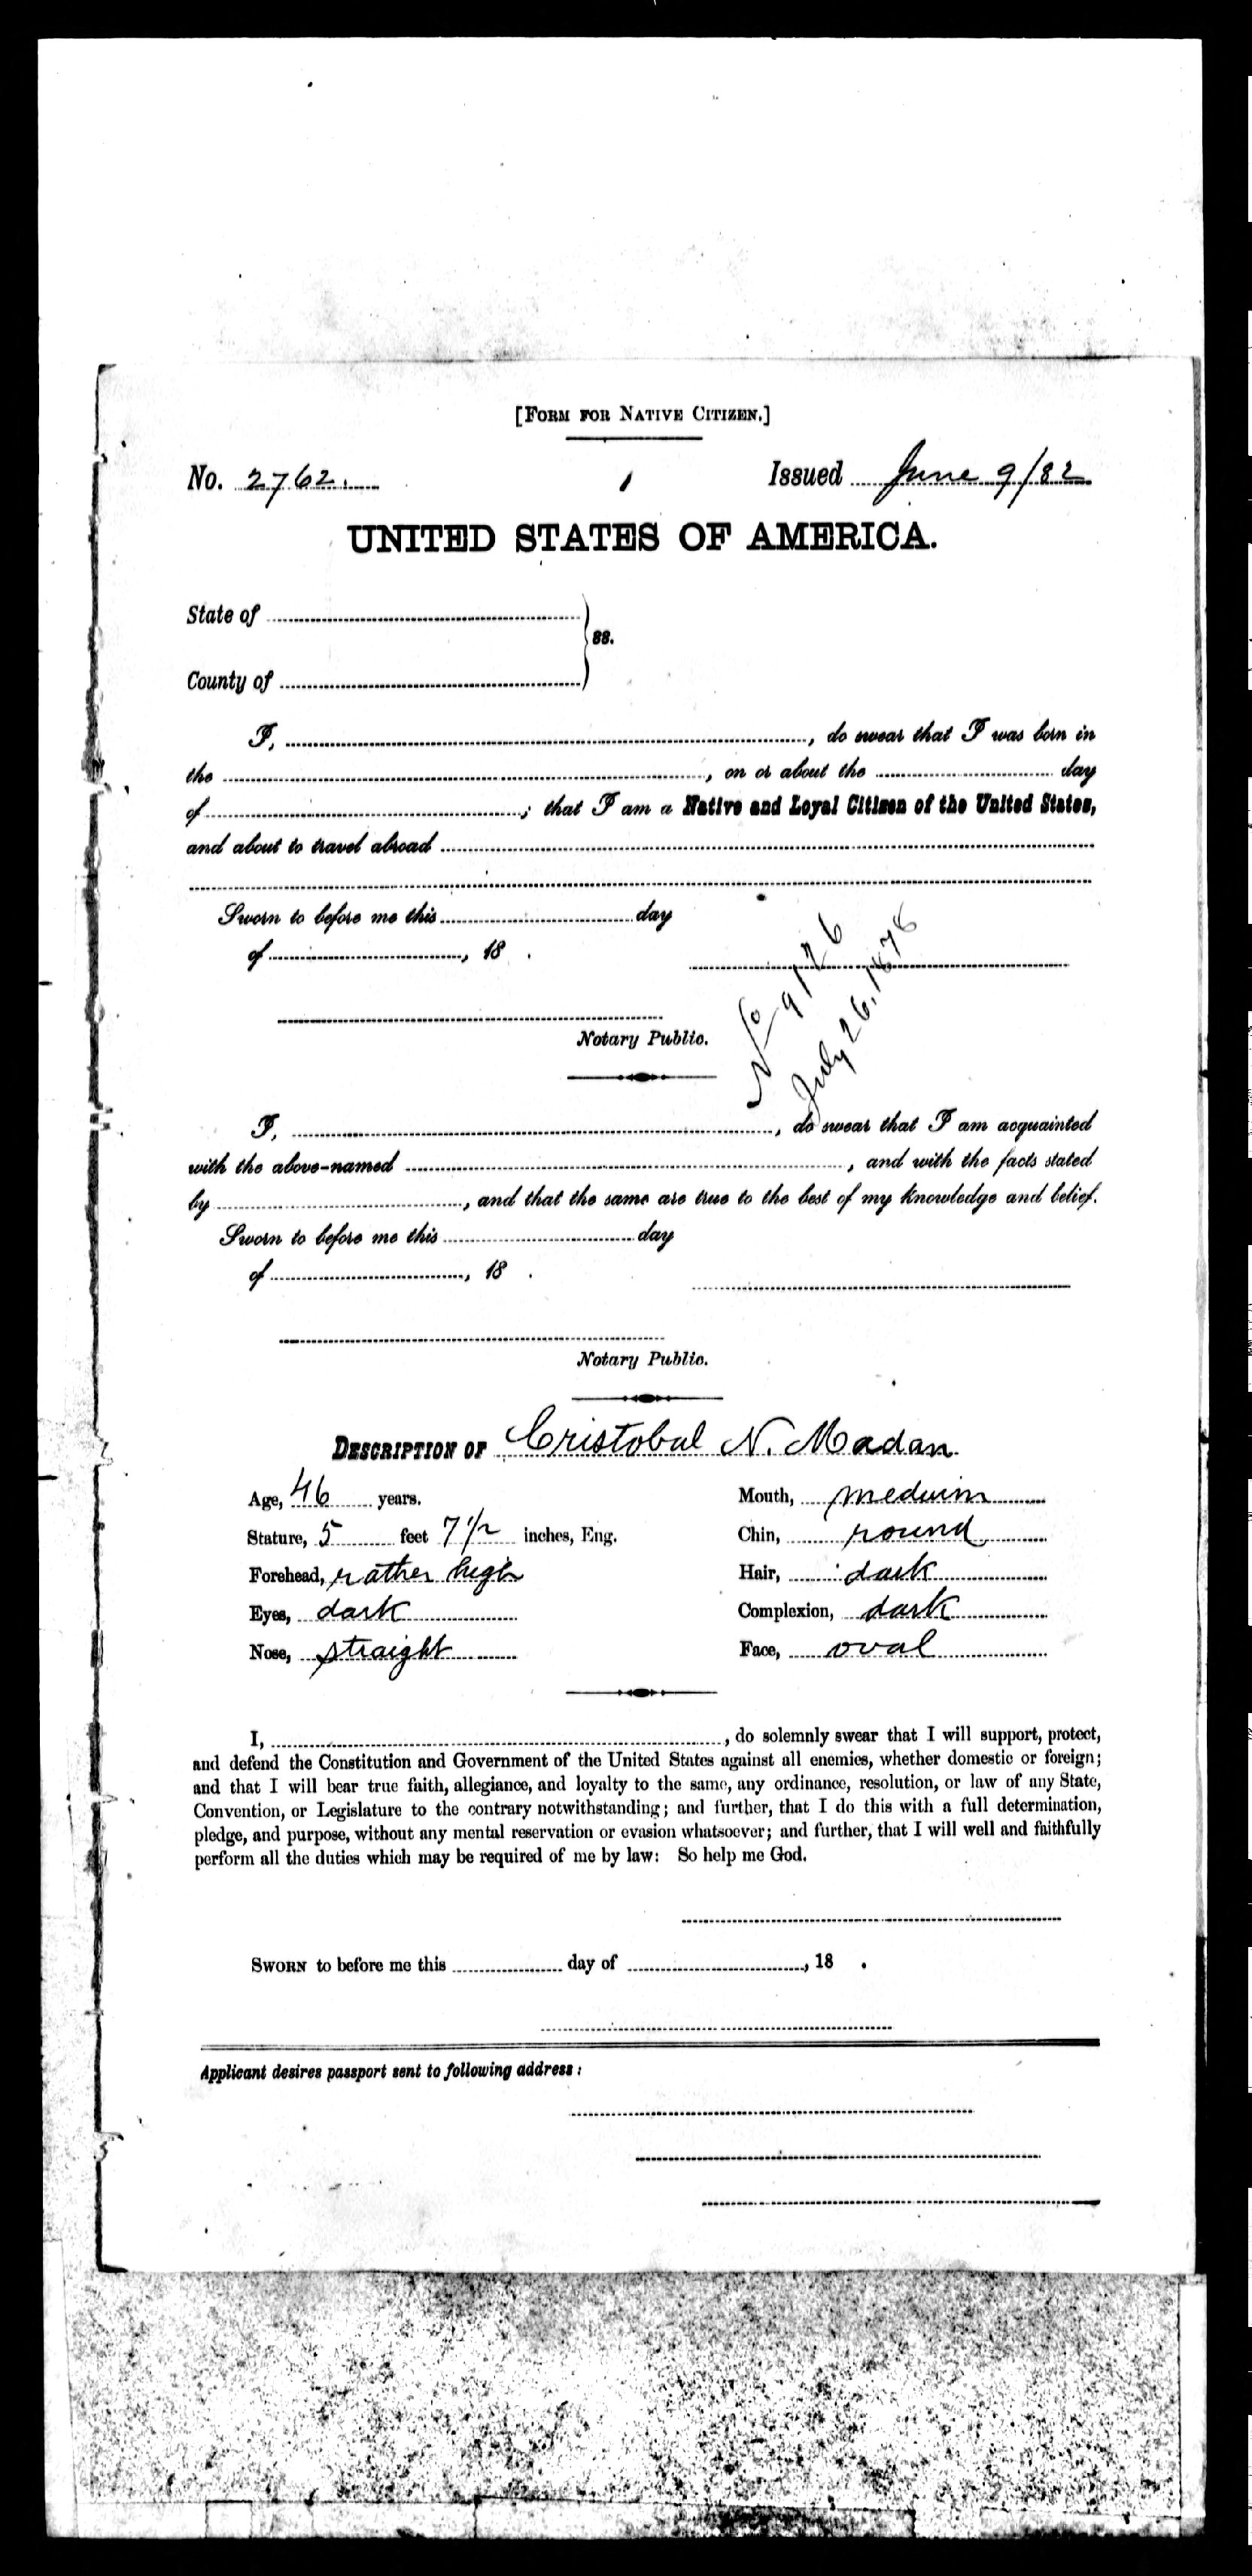 [FORM FOR NATIVE CITIZEN.]
No. 2762. Issued June 9/82
UNITED STATES OF AMERICA.
State of
ss.
County of
I, , do swear that I was born in
the , on or about the day
of ; that I am a Native and Loyal Citizen of the United States,
and about to travel abroad
Sworn to before me this day
of , 18 .
No 9126
July 26, 1878
Notary Public.
I, , do swear that I am acquainted
with the above-named , and with the facts stated
by , and that the same are true to the best of my knowledge and belief.
Sworn to before me this day
of , 18 .
Notary Public.
DESCRIPTION OF Cristobal N. Madan
Age, 46 years. Mouth, medium
Stature, 5 feet 7 1/2 inches, Eng. Chin, round
Forehead, rather high Hair, dark
Eyes, dark Complexion, dark
Nose, straight Face, oval
I, , do solemnly swear that I will support, protect,
and defend the Constitution and Government of the United States against all enemies, whether domestic or foreign;
and that I will bear true faith, allegiance, and loyalty to the same, any ordinance, resolution, or law of any State,
Convention, or Legislature to the contrary notwithstanding; and further, that I do this with a full determination,
pledge, and purpose, without any mental reservation or evasion whatsoever; and further, that I will well and faithfully
perform all the duties which may be required of me by law: So help me God.
SWORN to before me this day of , 18 .
Applicant desires passport sent to following address: